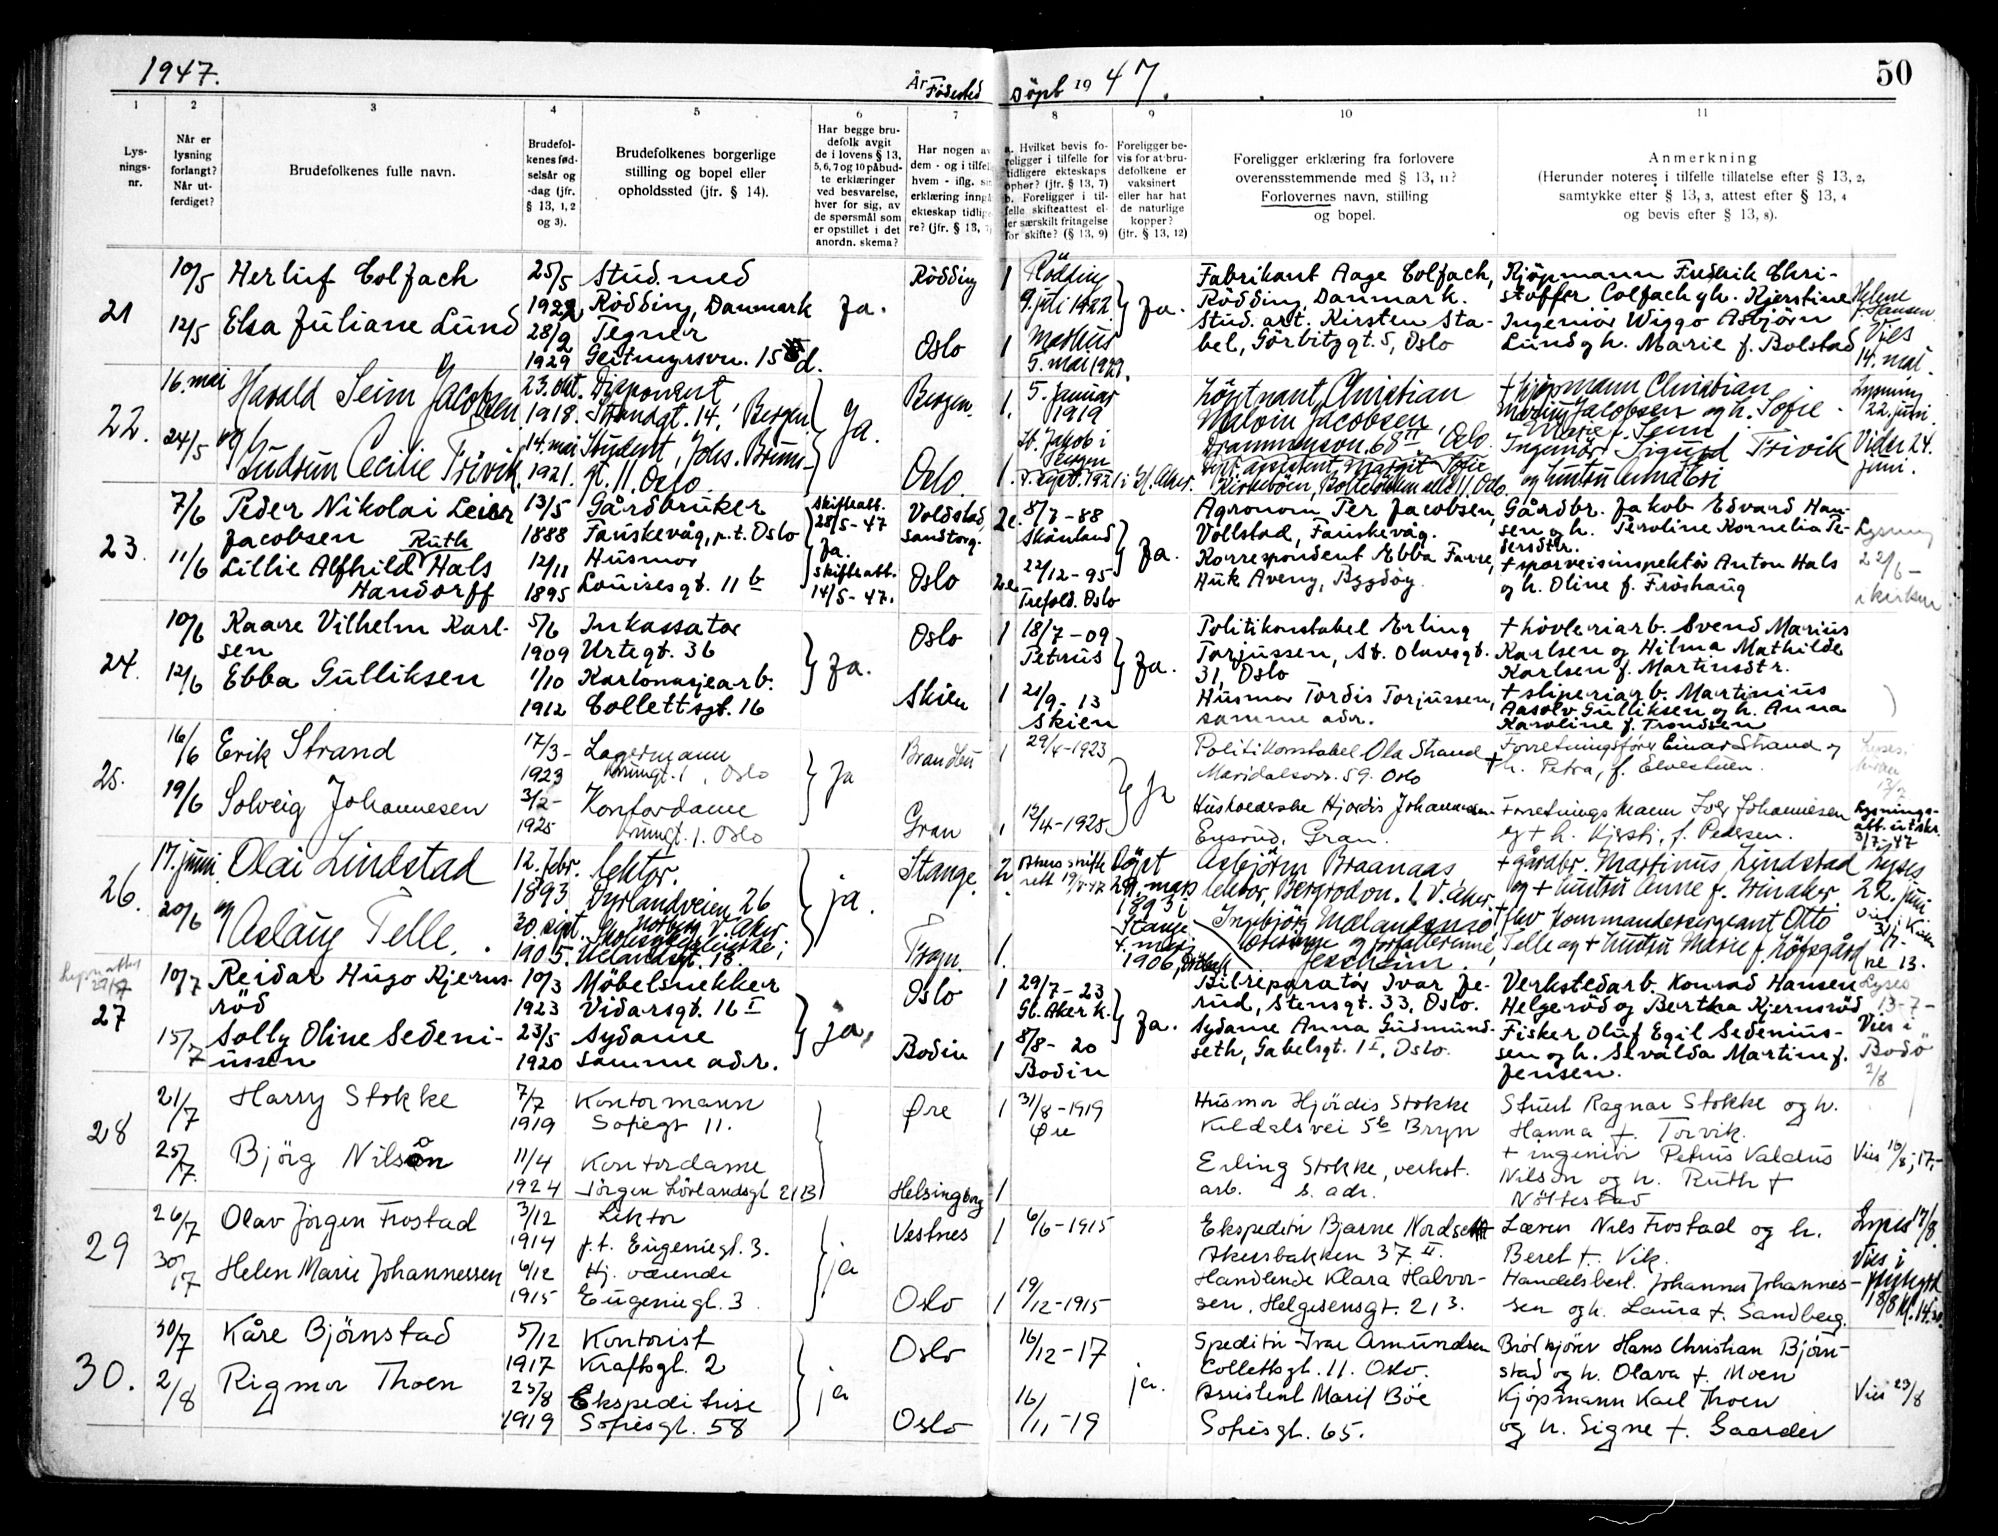 1947.
År Födested
Döpt 19 47.
50
1
2
3
4
5
6
7
8
9
10
11
Lys-
nings-
nr.
Når er
lysning
forlangt?
Når ut-
ferdiget?
Brudefolkenes fulle navn.
Brudefol-
kenes fød-
selsår og
-dag (jfr.
§ 13, 1, 2
og 3).
Brudefolkenes borgerlige
stilling og bopel eller
opholdssted (jfr. § 14).
Har begge bru-
defolk avgit
de i lovens § 13,
5, 6, 7 og 10 påbud-
te erklæringer
ved besvarelse,
hver for sig, av
de spørsmål som
er opstillet i det
anordn. skema?
Har nogen av
dem - og i tilfelle
hvem - iflg. sin
erklæring inngå
ekteskap tidlige-
re? (jfr. § 13, 7)
a. Hvilket bevis fo-
religger i tilfelle for
tidligere ekteskaps
ophør? (jfr. § 13, 7)
b. Foreligger i til-
felle skifteattest el-
ler særskilt fritagelse
for skifte? (§ 13, 9)
Foreligger be-
vis for at bru-
defolkene er
vaksinert
eller har hat
de naturlige
kopper?
(jfr. § 13, 12)
Foreligger erklæring fra forlovere
overensstemmende med § 13, 11?
Forlovernes navn, stilling
og bopel.
Anmerkning
(Herunder noteres i tilfelle tillatelse efter § 13, 2,
samtykke efter § 13, 3, attest efter § 13, 4
og bevis efter § 13, 8).
21
10/5 Herluf Colfach
12/5 Elsa Juliane Lund
25/5 Stud. med
1922 Rödding, Danmark
28/2 Tegner
1929 Geitmyrsvn. 15 d.
Ja.
Rödding
Oslo
1 Rödding
9. juli 1922
1 Markus
5. mai 1929.
Ja.
Fabrikant Aage Colfach,
Rödding, Danmark.
Stud. art. Kirsten Sta-
bel, Görbitzgt. 5, Oslo
Kjöpmann Fredrik Chri-
stoffer Colfach gh. Kjerstine
Ingeniör Wiggo Asbjörn
Lund gh. Marie f. Bolstad
Helene
f. Hansen
Vies
14. mai.
22.
16. mai Harald Seim Jacobsen
24/5 og
Gudrun Cecilie Trivik
23. okt. Disponent
1918. Strandgt. 14, Bergen
14. mai Student, Johs. Bruns-
1921. gt. 11. Oslo.
Ja.
Bergen.
Oslo.
1. 5. Januar
1919
St. Jakob i
Bergen
1. 4. sept. 1921 i V. Aker.
Löytnant, Christian
Malvin Jacobsen
Drammensvn. 68 II, Oslo.
+ kjöpmann Christian
Jacobsen og h. Sofie
Marie f. Seim
Ingeniör Sigurd Trivik
og hustru
Lysning
22. juni
Vider 24.
juni.
23.
7/6 Peder Nikolai Leier
Jacobsen
11/6 Lillie Alfhild Ruth Hals
Handorff
13/5 Gårdbruker
1888 Fauskevåg, p.t. Oslo
12/11 Husmor
1895 Louisesgt. 11 b
Skifteatt.
28/5 - 47
Ja.
Skifteatt.
14/5 - 47.
Voldstad,
Sandtorg.
Oslo
2e. 8/7 - 88
Skånland
22/12 - 95
2e. Trefold. Oslo
Ja.
Agronom Per Jacobsen,
Vollstad, Fauskevåg.
Korrespondent Ebba Farre,
Huk Aveny, Bygdöy.
Gårdbr. Jakob Edvard Han-
sen og h. Peroline Kornelia Pe-
dersdtr.
+ sporveisinspektör Anton Hals
og h. Oline f. Fröshaug
Lysning
22/6 -
i kirken
24.
10/6 Kaare Vilhelm Karl-
sen
12/6 Ebba Gulliksen
5/6 Inkassator
1909 Urtegt. 36
1/10 Kartonasjearb.
1912 Collettsgt. 16
Ja.
Oslo
Skien
1 18/7 - 09
Petrus
1 21/9 - 13
Skien
Ja.
Politikonstabel Erling
Torjussen, St. Olavsgt.
31, Oslo
Husmor Tordis Torjussen,
samme adr.
+ hövleriarb. Svend Marius
Karlsen og Hilma Mathilde
Karlsen f. Martinsdtr.
+ sliperiarb. Martinius
Aasolv Gulliksen og h. Anna
Karoline f. Trondsen
25.
16/6 Erik Strand
19/6 Solveig Johannesen
17/3 - Lagermann
1923 Krumgt. 1, Oslo
3/2 - Kontordame
1925 Krumgt. 1. Oslo
Ja
Brandbu
Gran
1 29/4 - 1923
1 12/4 - 1925.
Ja
Politikonstabel Ola Strand
Maridalsvn. 59. Oslo
Husholderske Hjördis Johannesen
Ensrud, Gran.
Forretningsförer Einar Strand og
+ h. Petra, f. Elvestuen.
Forretningsmann Iver Johannesen
og + h. Kjersti, f. Pedersen.
Lysnings-
att. utskr.
3/7 - 47
26.
17. juni Olai Lindstad
20/6 og
Aslaug Telle.
12. febr. lektor.
1893 Dyrlandveien 26
Nordberg V. Aker
30. sept.
1905.
ja.
Stange.
Trøgn.
2. Akers skifte
rett 19/6-47
Döpt
29. mars
1893 i
Stange
1. 4. mars
1906, Dröbak
Asbjörn Braanaas
lektor, Bergrodvn. 6 V. Aker.
Ingebjörg Mælandsmo
Jessheim.
+ gårdbr. Martinus Lindstad
og + hustru Anne f. Steraker.
+ flev kommandersergeant Otto
Telle og + hustru Marie f. Löfsgård
Lyses
22. juni
Vies i Kirken
3/7 -
kl. 13.
Lysn.attest
29/7
27
10/7 Reidar Hugo Kjerns-
röd
15/7 Solly Oline Sedeni-
ussen
10/3 Möbelsnekker
1923 Vidarsgt. 16 I
23/5 Sydame
1920 Samme adr.
ja.
Oslo
Bodin
1 29/7 - 23
Gl. Aker k.
1 8/8 - 20
Bodin
Ja.
Bilreparatör Ivar Je-
rud, Stensgt. 33, Oslo.
Sydame Anna Gudmund-
seth, Gabelsgt. 1 I, Oslo.
Verkstedarb. Konrad Hansen
Helgeröd og Bertha Kjernsröd
Fisker Oluf Egil Sedenius-
sen og h. Sevalda Martine f.
Jensen.
Lyses
13 - 7 -
Vies i
Bodö
2/8
28
21/7 Harry Stokke
25/7. Bjørg Nilson
7/7 Kontormann
1919 Sofiegt 11.
11/4 Kontordame
1924 Jørgen Løvlandsgt 21 B
Øre
Helsingborg
1 31/8 - 1919
Øre
1
Husmor Hjördis Stokke
Kildalsvei 5b Bryn
Erling Stokke, verkst.
arb. s. adr.
Stuert Ragnar Stokke og h.
Hanna f. Torvik.
+ ingeniør Petrus Valdus
Nilson og h. Ruth f
Nöttestad
Vies 16/8, 17,-
29
26/7 Olav Jörgen Frostad
30/7 Helen Marie Johannessen
3/12 Lektor
1914 p.t. Eugeniegt. 3.
6/12 Hj. værende
1915 Eugeniegt. 3
ja
Vestnes
Oslo
1 6/6 - 1915
1 19/12 - 1915
Ekspeditr Bjarne Nordsett
Akersbakken 37 II.
Handlende Klara Halvor-
sen, Helgesensgt. 21 3.
Lærer Nils Frostad og h.
Beret f. Vik.
Handelsbest. Johannes Johannes-
sen og h. Laura f. Sandberg.
Lyses 17/8.
Vies i
18/8 kl. 14.30.
30.
30/7 Kåre Bjørnstad
2/8 Rigmor Thoen
5/12 Kontorist
1917 Kraftsgt. 2
25/8 Ekspeditrise
1919 Sofiesgt. 58
ja
Oslo
Oslo
16/12 - 17
16/11 - 19
ja.
Speditr Ivar Amundsen
Collettsgt. 11. Oslo.
Assistent Marit Bøe
Sofiesgt. 65.
Brødkjører Hans Christian Bjørn-
stad og h. Olava f. Moen
Kjøpmann Karl Thoen
og h. Signe f. Gaarder
Vies 23/8